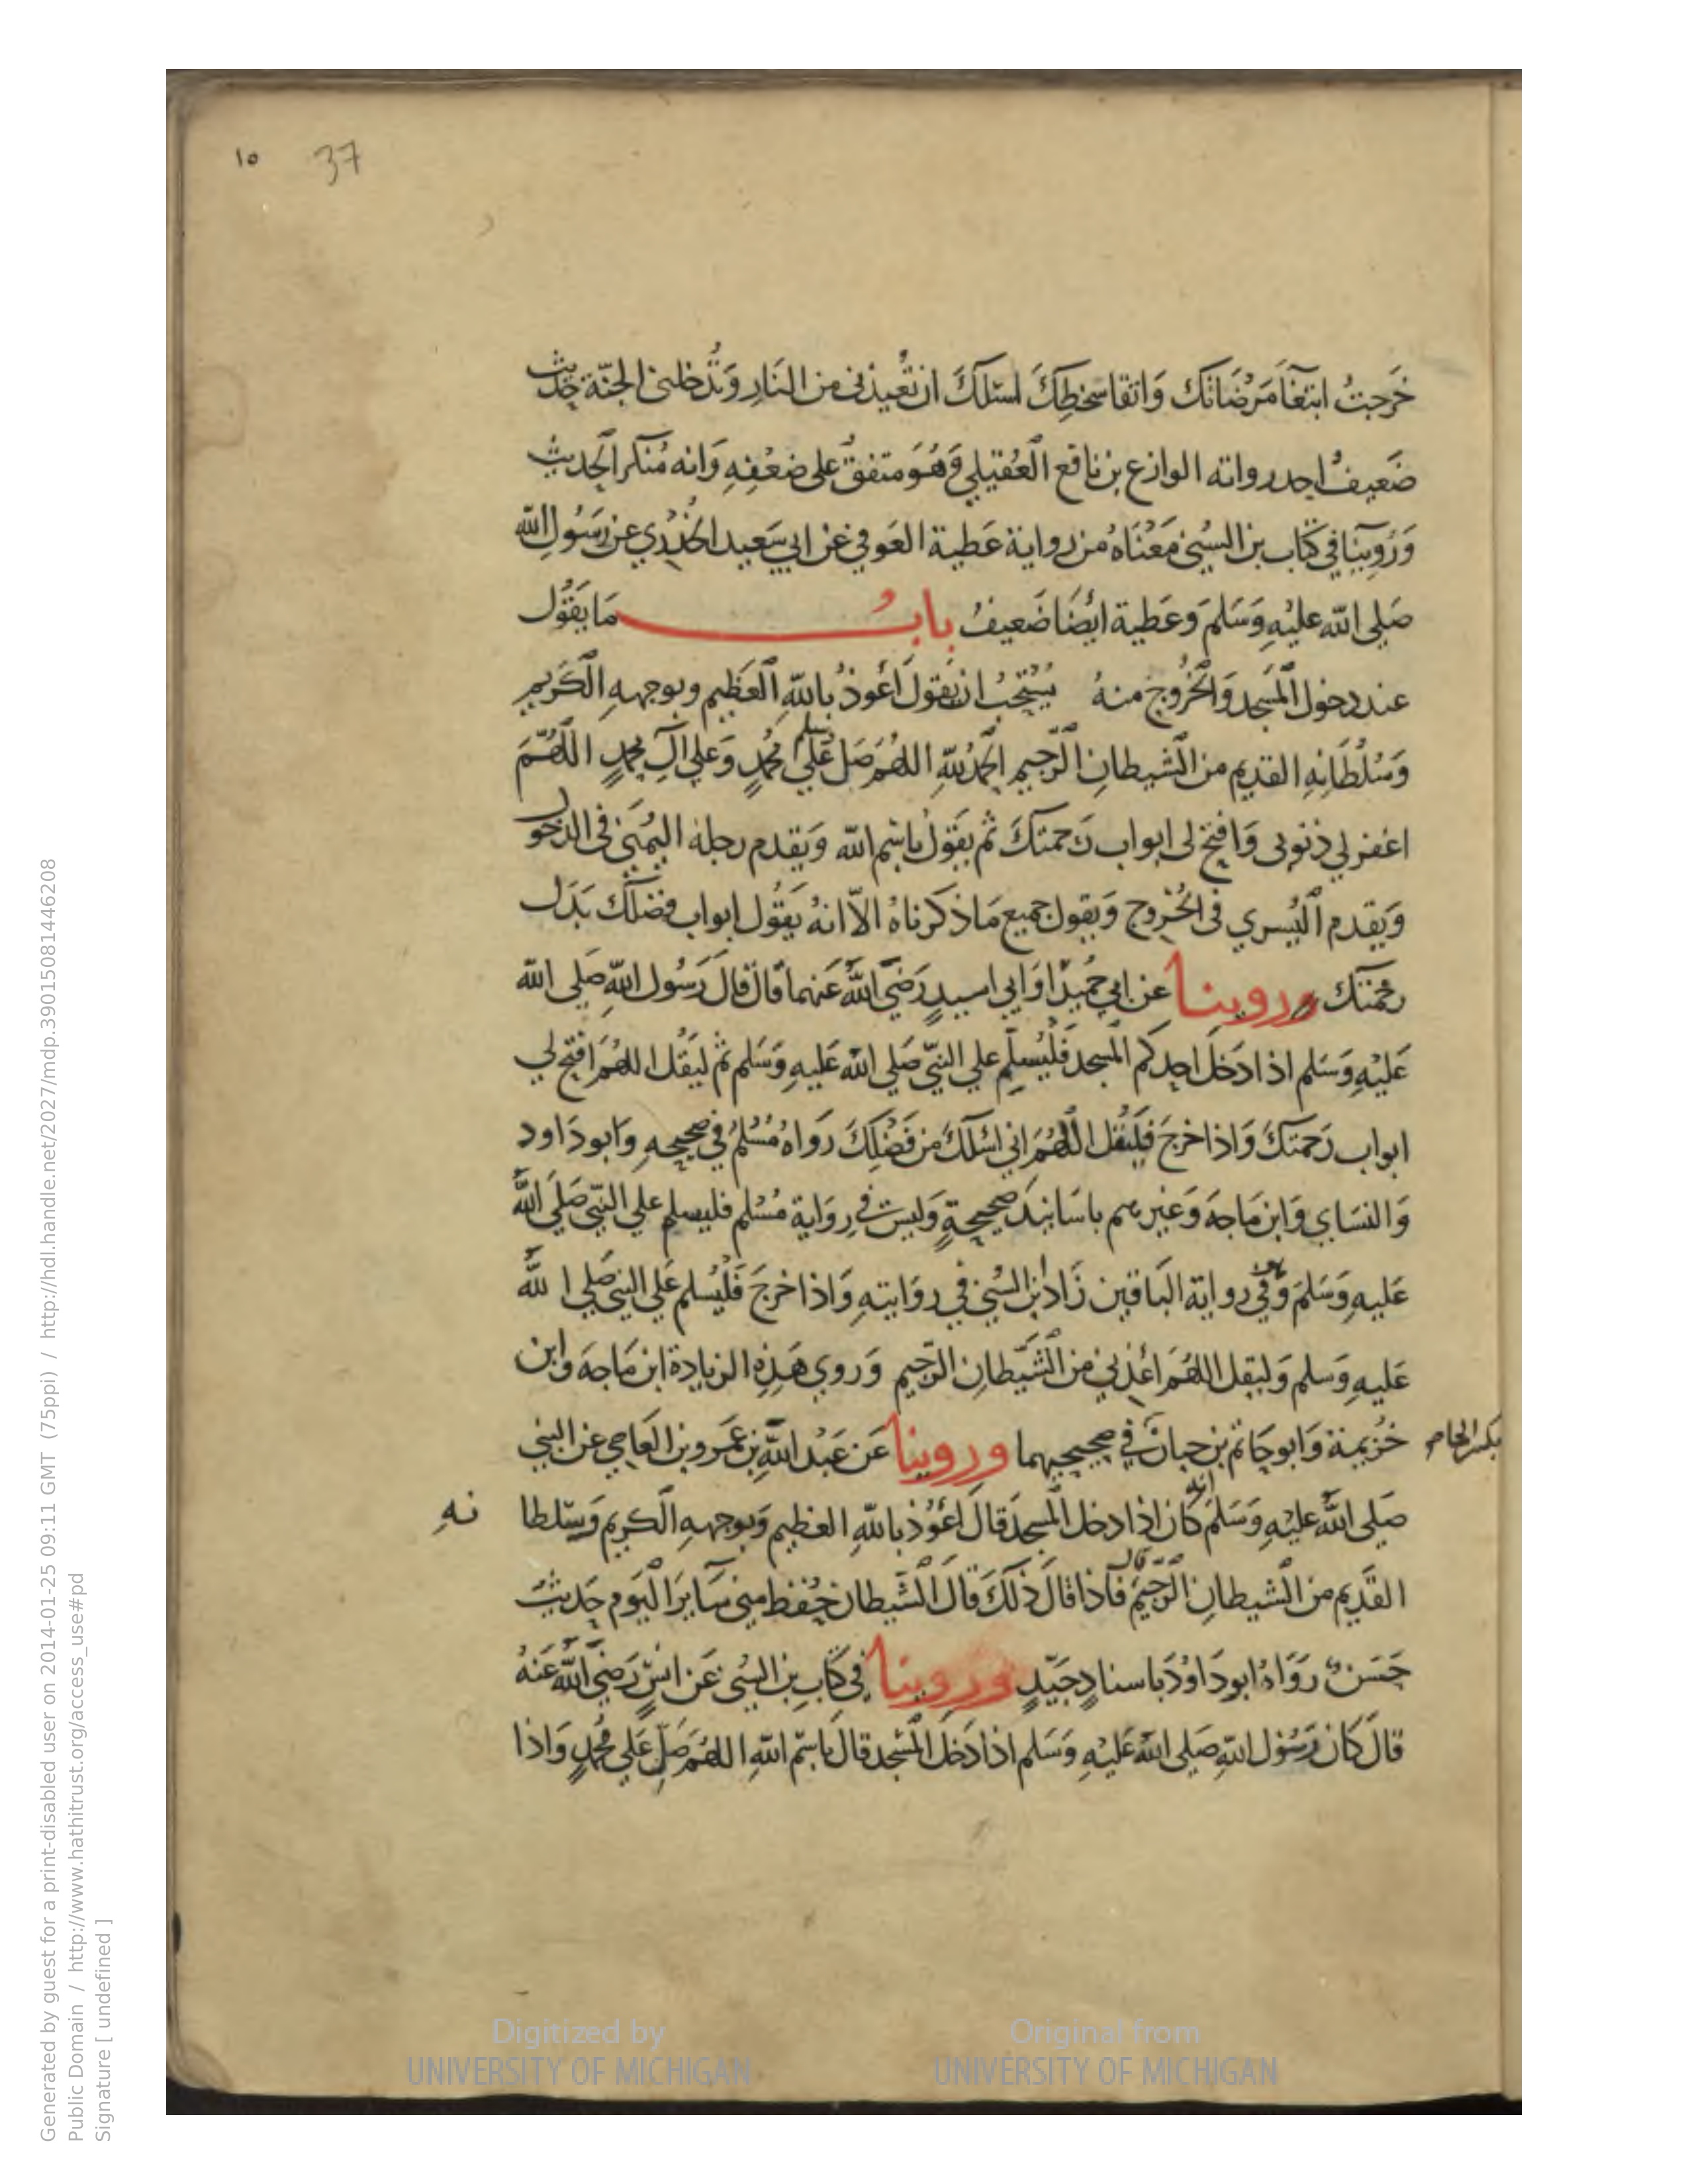 ١٥ 37
خَرَجتُ ابتغَآ مَرْضَاتكَ وَاتقا سخطِكَ اسئلكَ ان تُعيذنى من النَارِ وَتُدخلنى الجنّة حديث
ضَعيفٌ احد رواته الوازع بن نافع العُقيلي وَهُوَ متفقٌ على ضعْفِهِ وَانه مُنكر الحديث
وَرُوِينَا فى كتاب بن السُنى مَعْنَاهُ من رواية عَطية العَوفي عَن ابي سَعيد الخُدْري عن رَسُول الله
صَلى الله عليْهِ وَسَلم وَعَطية ايضًا ضَعيفُ بابُ مَا يَقُول
عند دخول المَسجد وَالخُرُوج منهُ يُسْتَحَبُ ان يقول أعوذُ باللهِ العَظِيم وبوجههِ الكَريمِ
وَسُلْطَانِهِ القديم من الشيطانِ الرّجيم الحَمْدُ للهِ اللهُمَ صَل عَلَى مُحُمدٍ وَعَلي آلِ محمدٍ اللهُمَ
اغفر لي ذنوبى وَافتح لى ابواب رَحمتكَ ثم يَقولُ باسْم الله وَيقدم رجلهُ اليُمنى فى الدخول
وَيقدم اليُسري فى الخُروج وَيقول جميع مَا ذكرناهُ الاّ انهُ يَقُول ابواب فضلكَ بَدَل
رَحْمَتكَ وروينا عن ابي حُمَيدٍ اوَابي اسيدٍ رَضَى اللهُ عَنهما قَالَ قالَ رَسُول اللهِ صَلى الله
عَليْهِ وَسَلم اذا دَخلَ احدكم المسجد فَلْيُسلم علي النبّي صَلى الله عَليهِ وَسَلم ثم ليَقُل اللهُمَ افتح لي
ابواب رَحمتكَ وَاذا خرجَ فَليَقُل اللّهُمَ اني اسْلكَ من فَضْلِكَ رَواهُ مُسْلمُ في صَحيحهِ وَابو دَاود
وَالنسَاي وَابن مَاجة وَغيرهم باسَانيدَ صَحيحةٍ وَليسَ في رِوَاية مُسْلم فليسلم علي النبّي صَلّى اللهُ
عَليهِ وَسَلمَ وَفي رواية البَاقين زَادَ بن السُنى فى روَايتهِ وَاذا خرجَ فَلْيُسلم عَلي النبى صَلى اللهُ
عَليهِ وَسَلم وَليقل اللهُمَ اعُذني من الشَيطانِ الرّجيم وَروي هَذِهِ الزيادة ابن مَاجة وابن
خزُيمة وَابو حَاتم بن حبانَ في صحيحيهما وروينا عَن عَبْد اللهِ بن عَمَرو بن العَاصي عن النبي
بكسر الحاء
صَلى اللهُ عليْهِ وَسَلمَ انه كان اذا دخل المسجدَ قالَ اعُوذ باللهِ العَظيم وَبوجههِ الكريم وَسُلطا
نهِ
القَديم من الشيطانِ الرّجيم قال فَاذا قالَ ذلكَ قالَ الشَيطان حُفظ منى سَايرَ اليَوم حَديثُ
حَسَنٌ رَوَاهُ ابو دَاوُدَ باسنادٍ جَيّدٍ وروينا فى كتاب بن السُنى عَن انسٍ رَضىَ اللهُ عَنهُ
قالَ كانَ رَسُول اللهِ صَلى اللهُ عَليْهِ وَسَلم اذا دَخلَ المَسْجد قالَ باسْم اللهِ اللهُمَ صَلِّ عَلي مُحُمدٍ وَاذا
Digitized by UNIVERSITY OF MICHIGAN
Original from UNIVERSITY OF MICHIGAN
Generated by guest for a print-disabled user on 2014-01-25 09:11 GMT (75ppi) / http://hdl.handle.net/2027/mdp.39015081446208
Public Domain / http://www.hathitrust.org/access_use#pd
Signature [ undefined ]